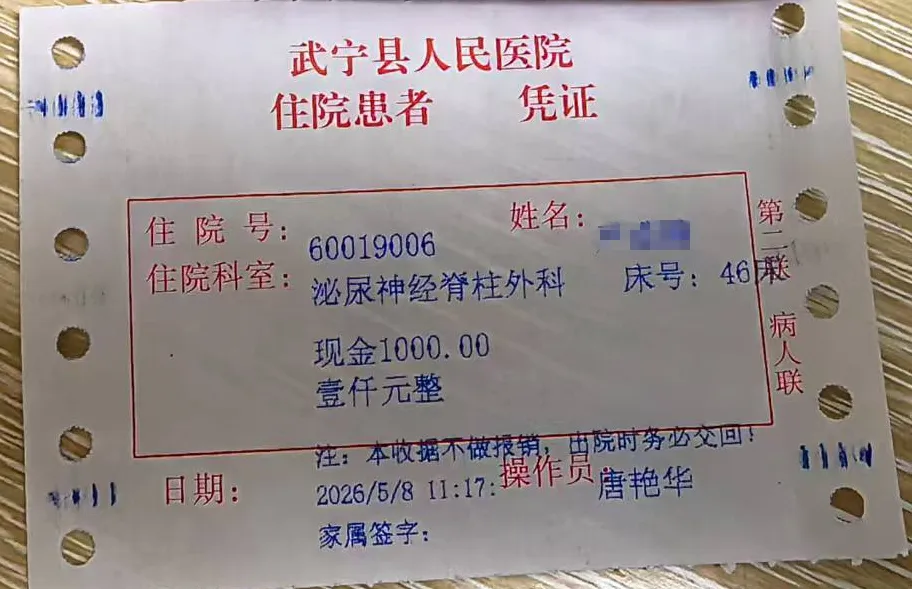 武宁县人民医院
住院患者 凭证
住院号： 60019006 姓名：
住院科室： 泌尿神经脊柱外科 床号： 46床
现金1000.00
壹仟元整
注：本收据不做报销，出院时务必交回！
日期： 2026/5/8 11:17: 操作员： 唐艳华
家属签字：
第二联 病人联